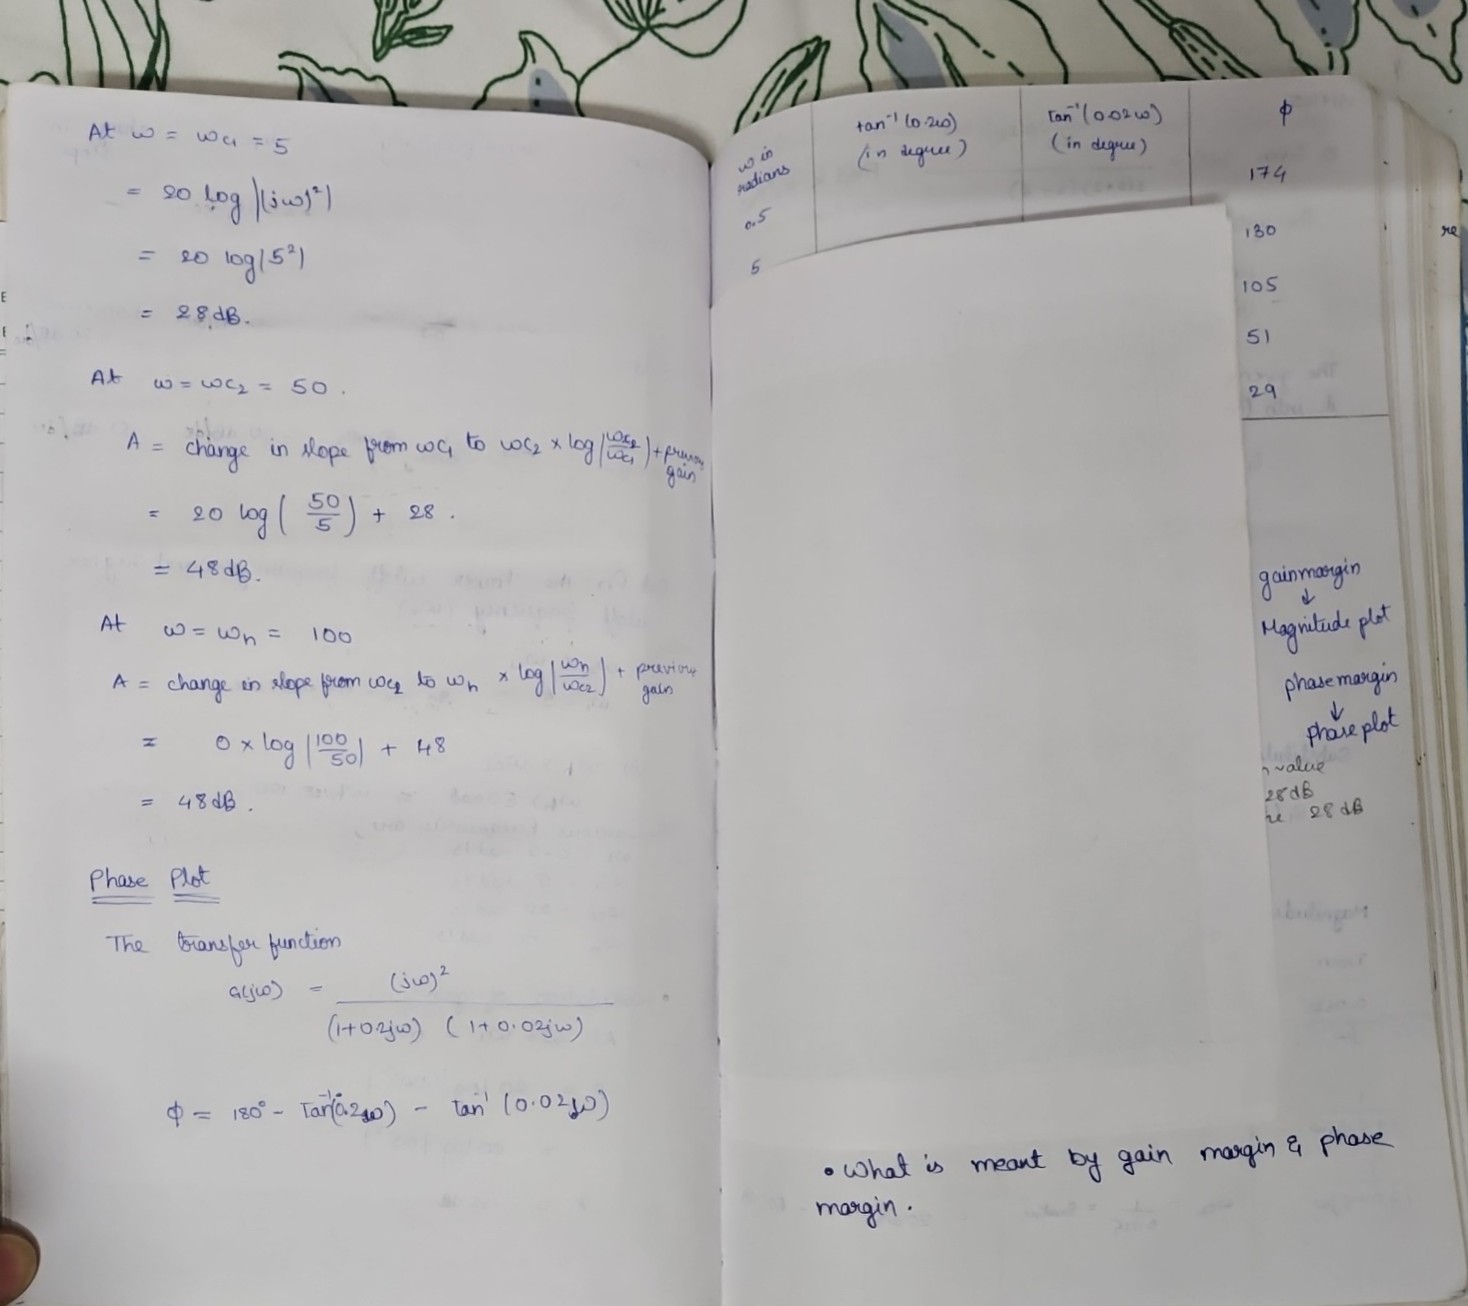 At ω = ωc₁ = 5
= 20 log |(jω)²|
= 20 log |5²|
= 28 dB.
At ω = ωc₂ = 50.
A = change in slope from ωc₁ to ωc₂ × log |ωc₂/ωc₁| + previous gain
= 20 log ( 50/5 ) + 28.
= 48 dB.
At ω = ωn = 100
A = change in slope from ωc₂ to ωn × log |ωn/ωc₂| + previous gain
= 0 × log |100/50| + 48
= 48 dB.
Phase Plot
The transfer function
G(jω) = (jω)² / (1+0.2jω) (1+0.02jω)
ϕ = 180° - Tan⁻¹(0.2ω) - Tan⁻¹(0.02ω)
ω in radians tan⁻¹(0.2ω) (in degree) Tan⁻¹(0.02ω) (in degree) ϕ
0.5 174
5 130
105
51
29
gain margin
↓
Magnitude plot
phase margin
↓
phase plot
value
28 dB
28 dB
• What is meant by gain margin & phase
margin.